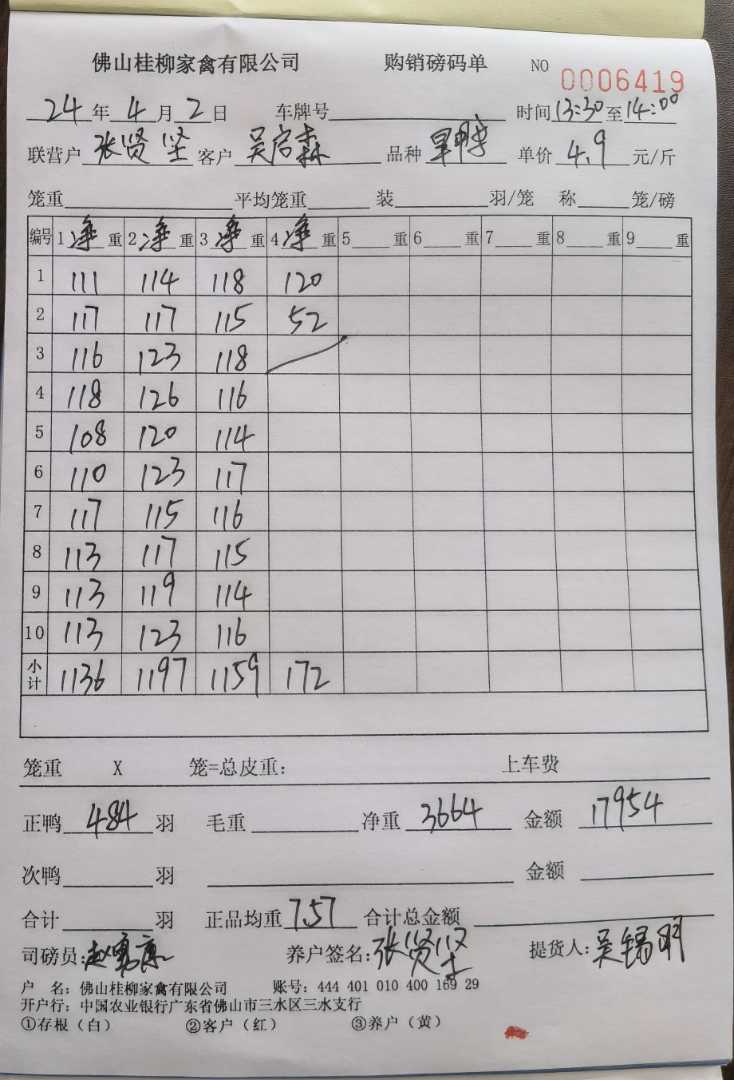 佛山桂柳家禽有限公司 购销磅码单 NO 0006419
24年4月2日 车牌号 时间13:30至14:00
联营户 张贤坚 客户 吴启森 品种 单价 4.9 元/斤
笼重 平均笼重 装 羽/笼 称 笼/磅
编号 1净重 2净重 3净重 4净重 5重 6重 7重 8重 9重
1 111 114 118 120
2 117 117 115 52
3 116 123 118
4 118 126 116
5 108 120 114
6 110 123 117
7 117 115 116
8 113 117 115
9 113 119 114
10 113 123 116
小计 1136 1197 1159 172
笼重 X 笼=总皮重: 上车费
正鸭 484 羽 毛重 净重 3664 金额 17954
次鸭 羽 金额
合计 羽 正品均重 7.57 合计总金额
司磅员: 养户签名:张贤坚 提货人:吴锡明
户 名: 佛山桂柳家禽有限公司 账号: 444 401 010 400 169 29
开户行: 中国农业银行广东省佛山市三水区三水支行
①存根(白) ②客户(红) ③养户(黄)